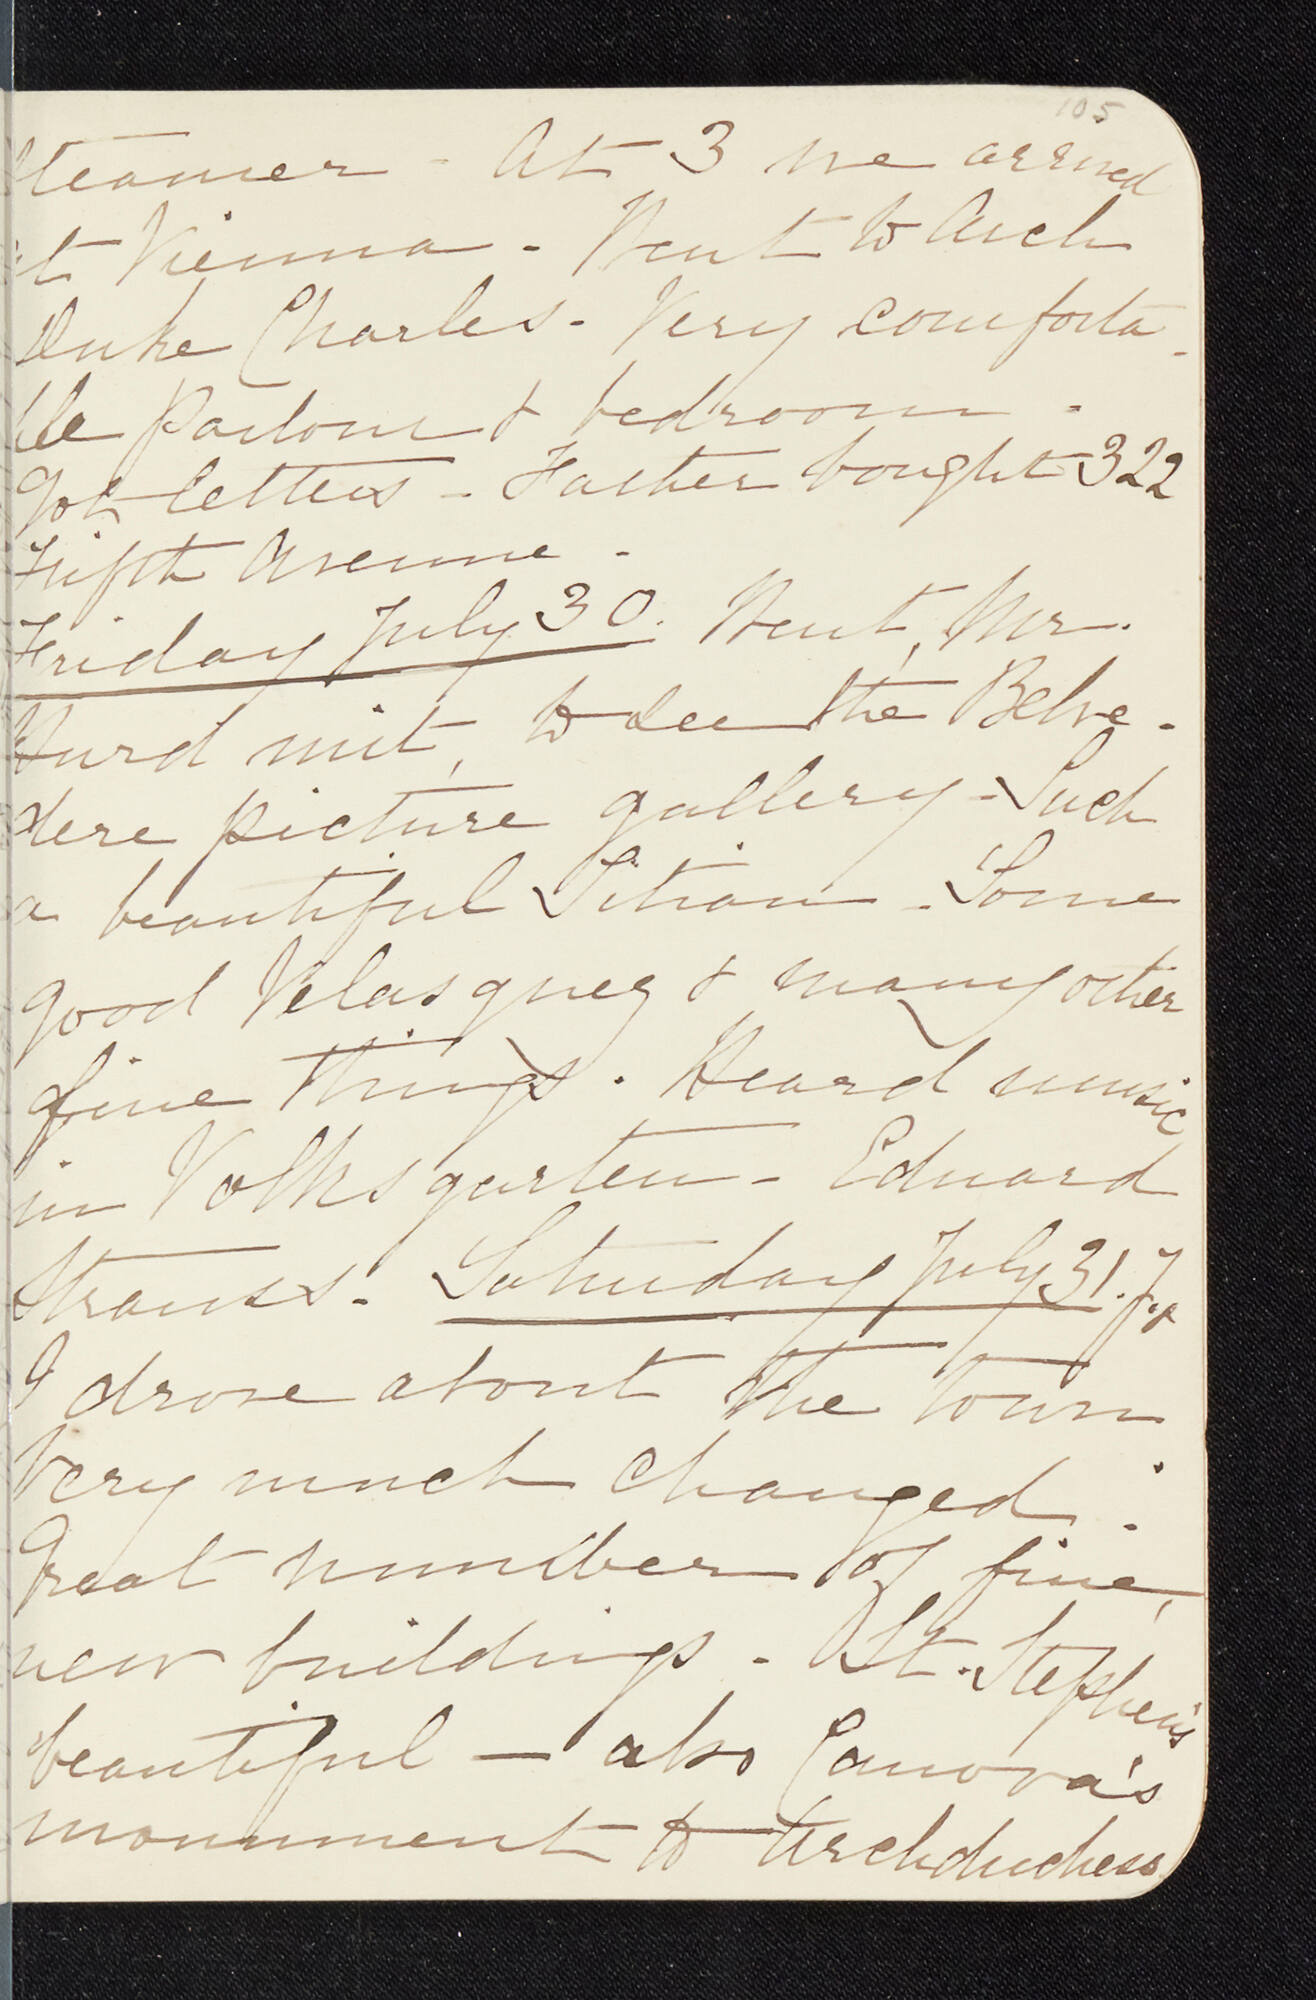 105
steamer - At 3 we arrived
at Vienna - Went to Arch
Duke Charles - Very comforta-
ble Parlour & bedroom -
Got letters - Father bought 322
Fifth Avenue -
Friday July 30. Went, Mr.
Hurd mit, to see the Belve-
dere picture gallery - Such
a beautiful Titian - Some
good Velasquez & many other
fine things. Heard music
in Volksgarten - Eduard
Strauss. Saturday July 31. J. &
I drove about the town
Very much changed -
Great number of fine,
new buildings - St. Stephen's
beautiful - also Canova's
monument to Archduchess